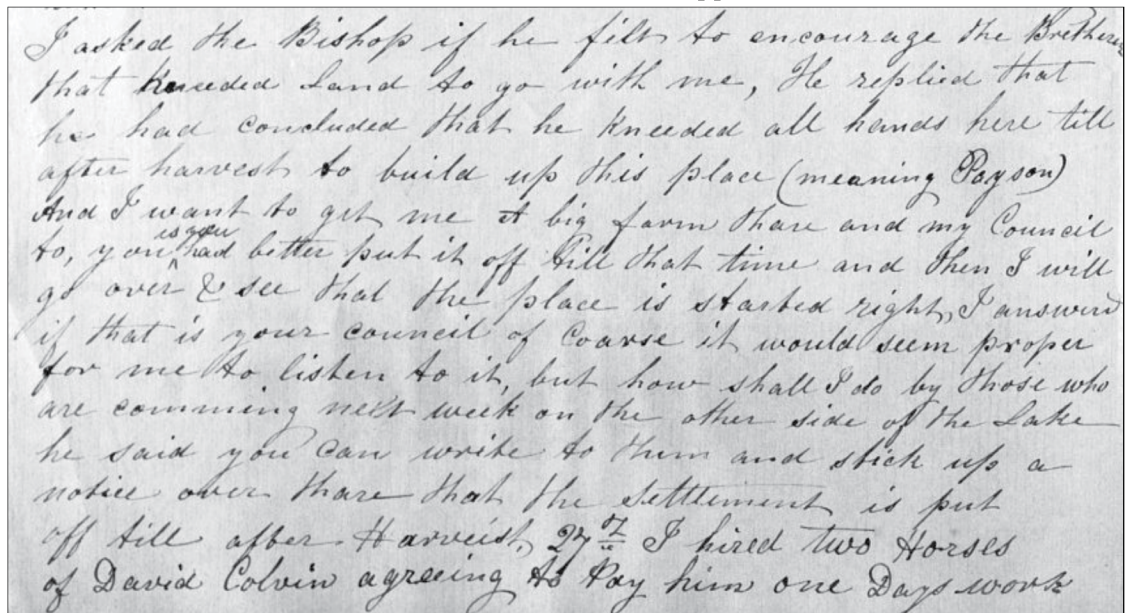 I asked the Bishop if he felt to encourage the Bretheren
that kneeded Land to go with me, He replied that
he had concluded that he kneeded all hands here till
after harvest to build up this place (meaning Payson)
And I want to get me A big farm thare and my Council
is you
to, you had better put it off till that time and then I will
go over & see that the place is started right, I answerd
if that is your council of Coarse it would seem proper
for me to listen to it, but how shall I do by those who
are comming next week on the other side of the Lake
he said you can write to them and stick up a
notice over thare that the Setttlement is put
off till after Harveist, 27th I hired two Horses
of David Colvin agreeing to Pay him one Days work